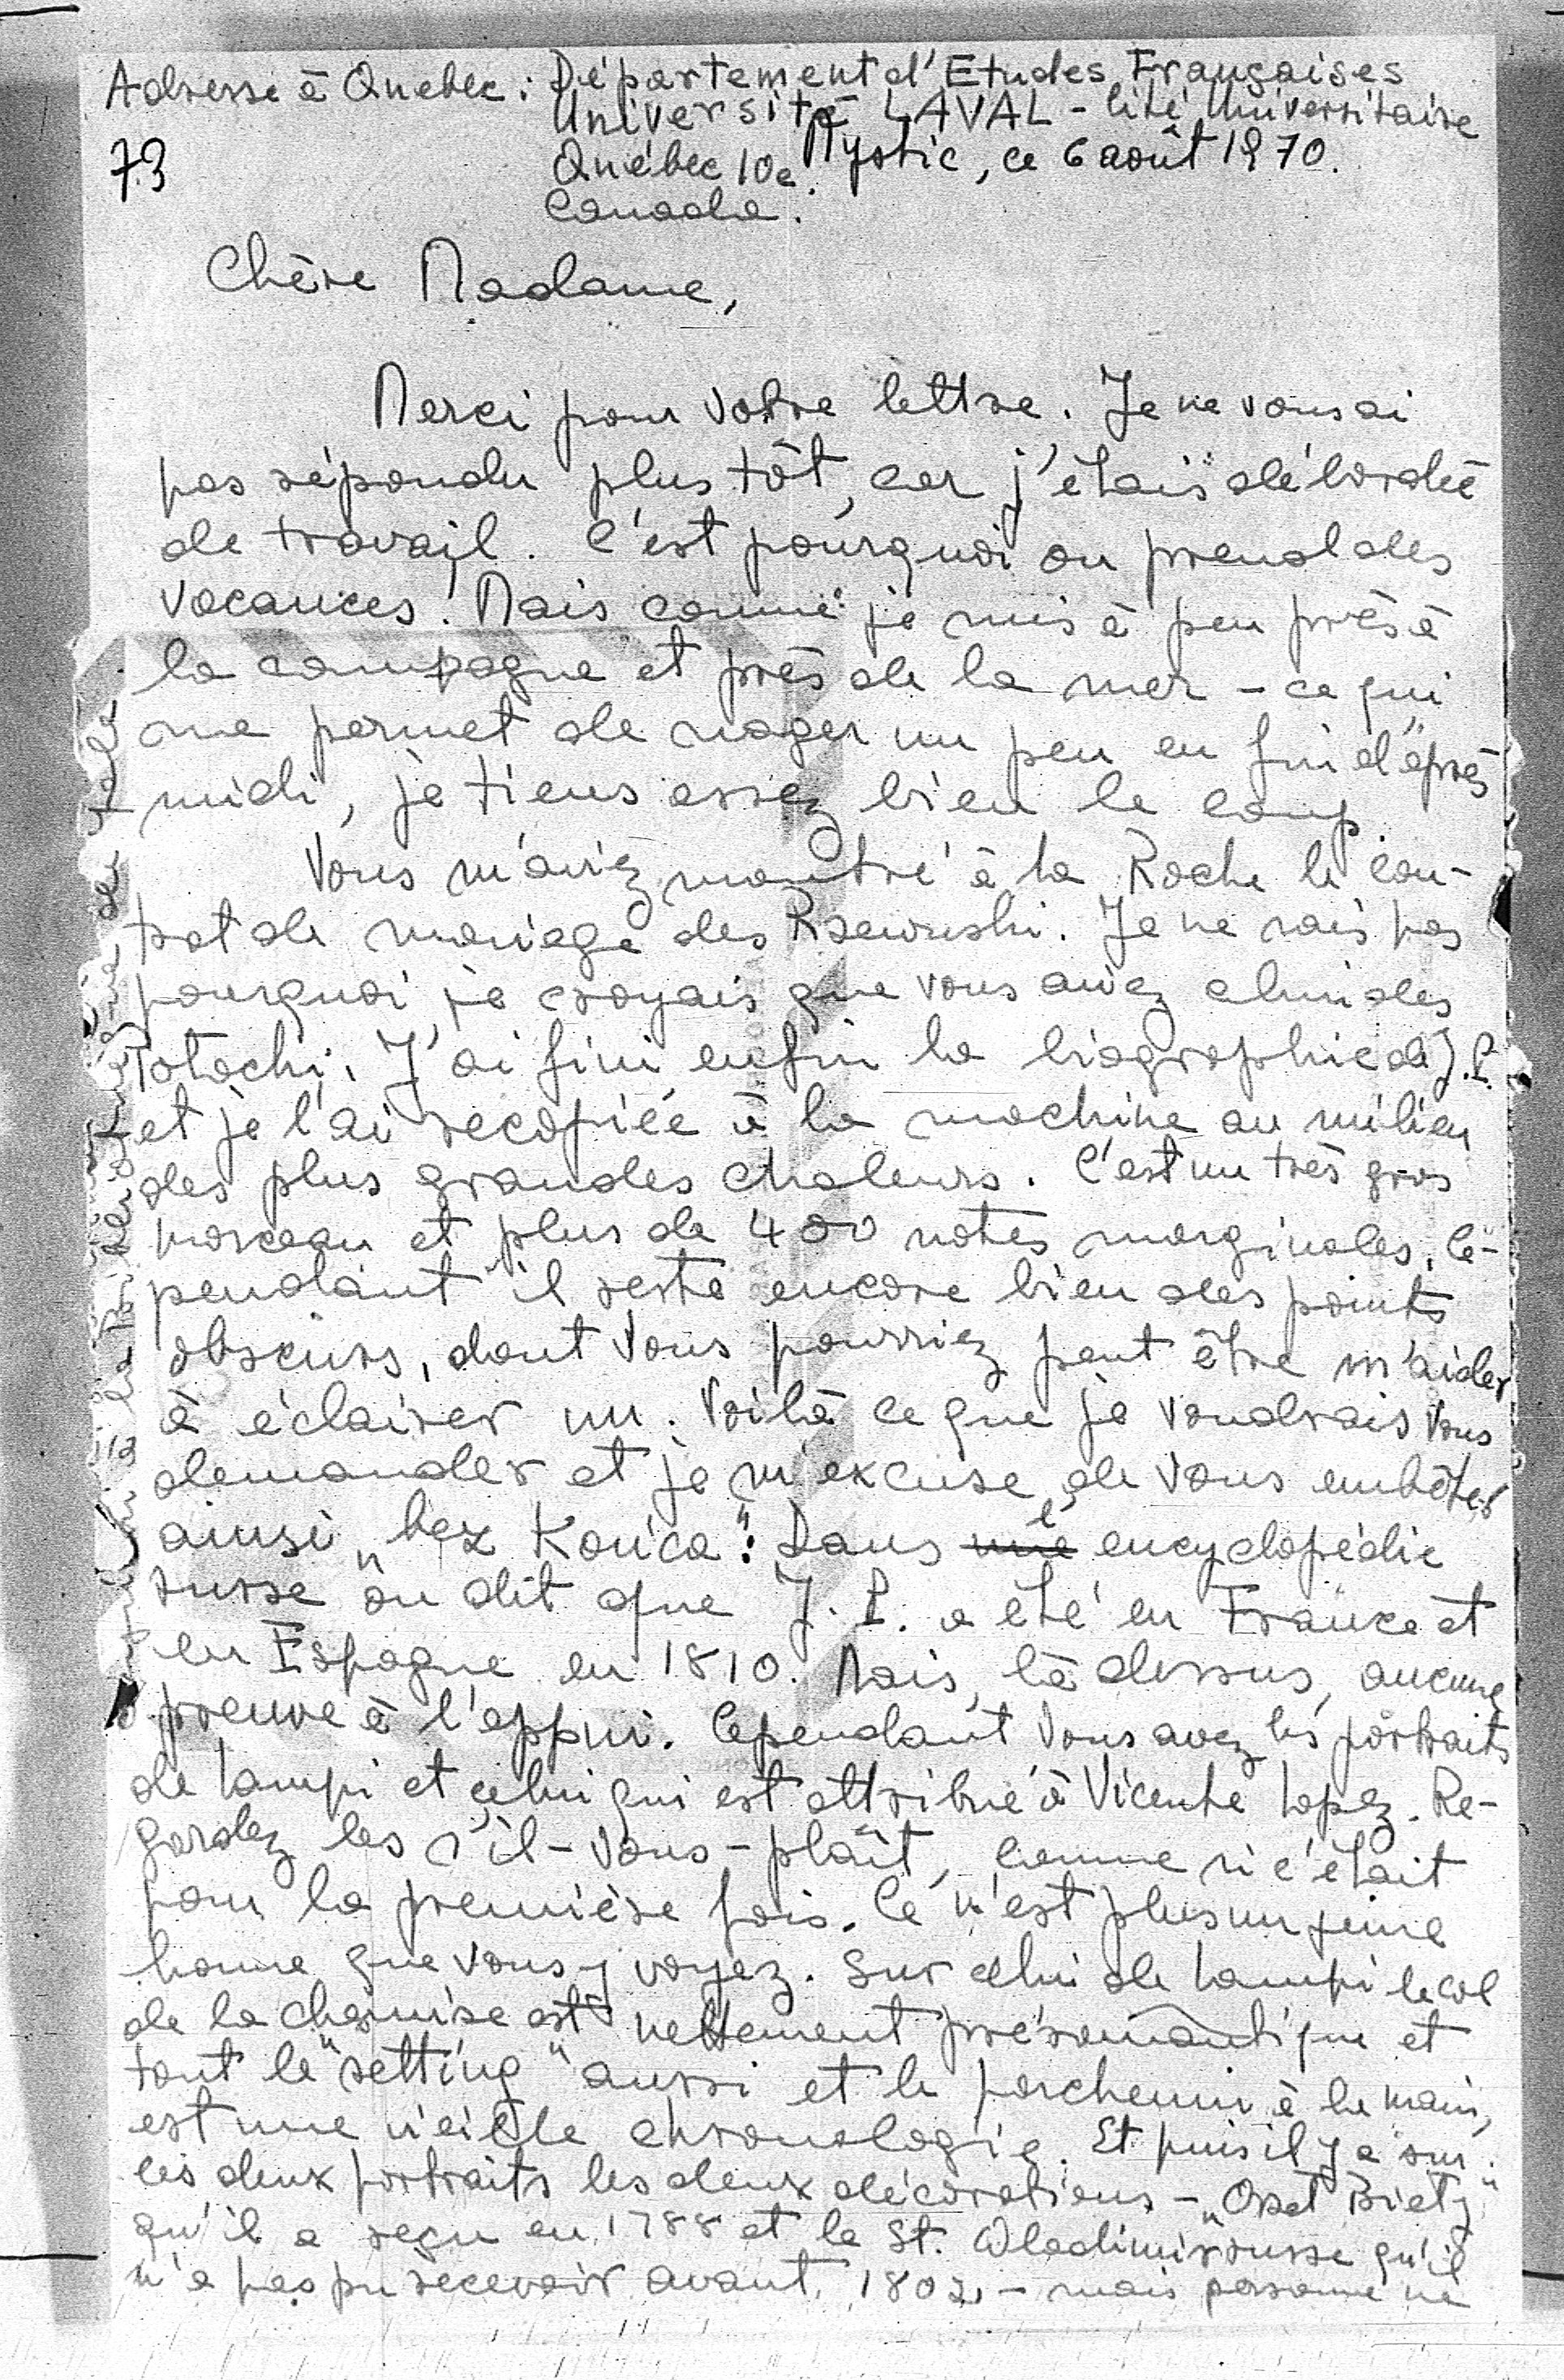 Adresse à Quebec : Département d'Etudes Françaises
Université LAVAL - Cité Universitaire
Québec 10e.
Canada.
73
Mystic, ce 6 août 1970.
Chère Madame,
Merci pour votre lettre. Je ne vous ai
pas répondu plus tôt, car j'étais débordée
de travail. C'est pourquoi on prend des
vacances! Mais comme je suis à peu près à
la campagne et près de la mer - ce qui
me permet de nager un peu en fin d'après
midi, je tiens assez bien le coup.
Vous m'aviez montré à La Roche le con-
trat de mariage des Rzewuski. Je ne sais pas
pourquoi je croyais que vous aviez celui des
Potocki. J'ai fini enfin la biographie de J. P.
et je l'ai recopiée à la machine au milieu
des plus grandes chaleurs. C'est un très gros
morceau et plus de 400 notes marginales. Ce-
pendant il reste encore bien des points
obscurs, dont vous pourriez peut être m'aider
à éclairer un. Voilà ce que je voudrais vous
demander et je m'excuse de vous embêter
ainsi „bez końca": Dans l'encyclopédie
russe on dit que J. P. a été en France et
en Espagne en 1810. Mais, là dessus, aucune
preuve à l'appui. Cependant vous avez les portraits
de Lampi et celui qui est attribué à Vicente Lopez. Re-
gardez les s'il-vous-plaît, comme si c'était
pour la première fois. Ce n'est plus un jeune
homme que vous y voyez. Sur celui de Lampi le col
de la chemise est nettement préromantique et
tout le "setting" aussi et le parchemin à la main,
est une chronologie. Et puis il y a sur
les deux portraits les deux décorations - „Orzeł Biały"
qu'il a reçu en 1788 et le St. Wladimir russe qu'il
n'a pas pu recevoir avant 1802, - mais personne ne